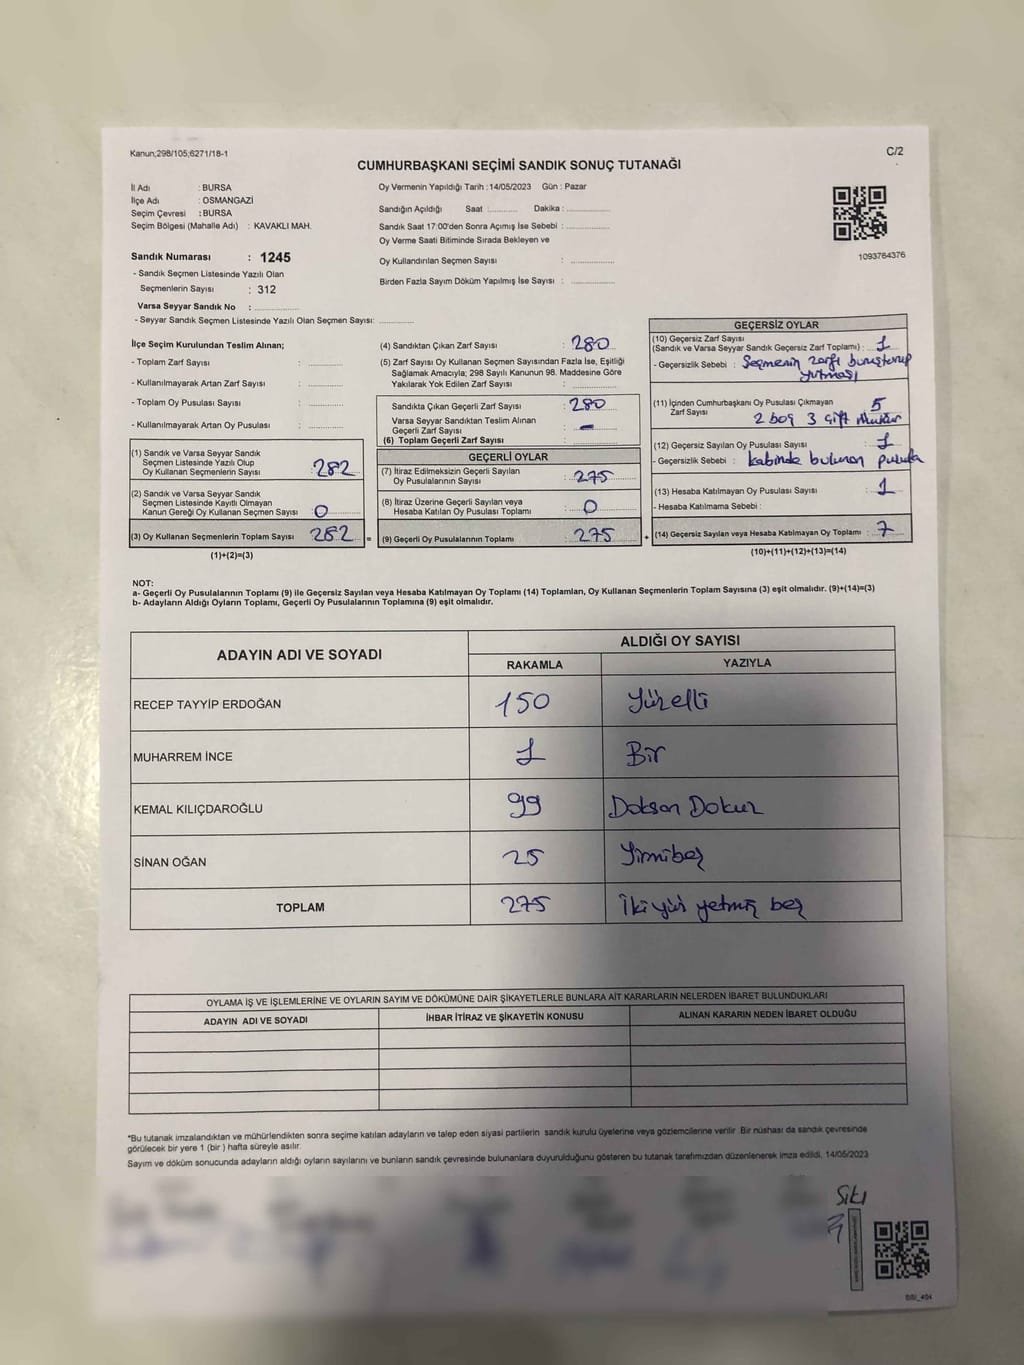 Kanun;298/105;6271/18-1
C/2
CUMHURBAŞKANI SEÇİMİ SANDIK SONUÇ TUTANAĞI
İl Adı : BURSA
İlçe Adı : OSMANGAZİ
Seçim Çevresi : BURSA
Seçim Bölgesi (Mahalle Adı) : KAVAKLI MAH.
Sandık Numarası : 1245
- Sandık Seçmen Listesinde Yazılı Olan
Seçmenlerin Sayısı : 312
Varsa Seyyar Sandık No : ................
- Seyyar Sandık Seçmen Listesinde Yazılı Olan Seçmen Sayısı: ............
Oy Vermenin Yapıldığı Tarih :14/05/2023 Gün : Pazar
Sandığın Açıldığı Saat :........... Dakika :................
Sandık Saat 17:00'den Sonra Açımış İse Sebebi :................
Oy Verme Saati Bitiminde Sırada Bekleyen ve
Oy Kullandırılan Seçmen Sayısı : ................
Birden Fazla Sayım Döküm Yapılmış İse Sayısı : ................
1093764376
İlçe Seçim Kurulundan Teslim Alınan;
- Toplam Zarf Sayısı : ............
- Kullanılmayarak Artan Zarf Sayısı : ............
- Toplam Oy Pusulası Sayısı : ............
- Kullanılmayarak Artan Oy Pusulası : ............
(1) Sandık ve Varsa Seyyar Sandık
Seçmen Listesinde Yazılı Olup
Oy Kullanan Seçmenlerin Sayısı : 282
(2) Sandık ve Varsa Seyyar Sandık
Seçmen Listesinde Kayıtlı Olmayan
Kanun Gereği Oy Kullanan Seçmen Sayısı : 0
(3) Oy Kullanan Seçmenlerin Toplam Sayısı : 282 =
(1)+(2)=(3)
(4) Sandıktan Çıkan Zarf Sayısı : 280
(5) Zarf Sayısı Oy Kullanan Seçmen Sayısından Fazla İse, Eşitliği
Sağlamak Amacıyla; 298 Sayılı Kanunun 98. Maddesine Göre
Yakılarak Yok Edilen Zarf Sayısı : ............
Sandıkta Çıkan Geçerli Zarf Sayısı : 280
Varsa Seyyar Sandıktan Teslim Alınan
Geçerli Zarf Sayısı : -
(6) Toplam Geçerli Zarf Sayısı : ............
GEÇERLİ OYLAR
(7) İtiraz Edilmeksizin Geçerli Sayılan
Oy Pusulalarının Sayısı : 275
(8) İtiraz Üzerine Geçerli Sayılan veya
Hesaba Katılan Oy Pusulası Toplamı : 0
(9) Geçerli Oy Pusulalarının Toplamı : 275 +
GEÇERSİZ OYLAR
(10) Geçersiz Zarf Sayısı
(Sandık ve Varsa Seyyar Sandık Geçersiz Zarf Toplamı) : 1
- Geçersizlik Sebebi : Seçmenin zarfı buruşturup
yutması
(11) İçinden Cumhurbaşkanı Oy Pusulası Çıkmayan
Zarf Sayısı 5
2 boş 3 çift mühür
(12) Geçersiz Sayılan Oy Pusulası Sayısı : 1
- Geçersizlik Sebebi : kabinde bulunan pusula
(13) Hesaba Katılmayan Oy Pusulası Sayısı : 1
- Hesaba Katılmama Sebebi :
(14) Geçersiz Sayılan veya Hesaba Katılmayan Oy Toplamı : 7
(10)+(11)+(12)+(13)=(14)
NOT:
a- Geçerli Oy Pusulalarının Toplamı (9) ile Geçersiz Sayılan veya Hesaba Katılmayan Oy Toplamı (14) Toplamları, Oy Kullanan Seçmenlerin Toplam Sayısına (3) eşit olmalıdır. (9)+(14)=(3)
b- Adayların Aldığı Oyların Toplamı, Geçerli Oy Pusulalarının Toplamına (9) eşit olmalıdır.
ADAYIN ADI VE SOYADI
ALDIĞI OY SAYISI
RAKAMLA YAZIYLA
RECEP TAYYİP ERDOĞAN 150 Yüzelli
MUHARREM İNCE 1 Bir
KEMAL KILIÇDAROĞLU 99 Doksan Dokuz
SİNAN OĞAN 25 Yirmibeş
TOPLAM 275 İkiyüz yetmiş beş
OYLAMA İŞ VE İŞLEMLERİNE VE OYLARIN SAYIM VE DÖKÜMÜNE DAİR ŞİKAYETLERLE BUNLARA AİT KARARLARIN NELERDEN İBARET BULUNDUKLARI
ADAYIN ADI VE SOYADI İHBAR İTİRAZ VE ŞİKAYETİN KONUSU ALINAN KARARIN NEDEN İBARET OLDUĞU
*Bu tutanak imzalandıktan ve mühürlendikten sonra seçime katılan adayların ve talep eden siyasi partilerin sandık kurulu üyelerine veya gözlemcilerine verilir. Bir nüshası da sandık çevresinde
görülecek bir yere 1 (bir ) hafta süreyle asılır.
Sayım ve döküm sonucunda adayların aldığı oyların sayılarını ve bunların sandık çevresinde bulunanlara duyurulduğunu gösteren bu tutanak tarafımızdan düzenlenerek imza edildi. 14/05/2023